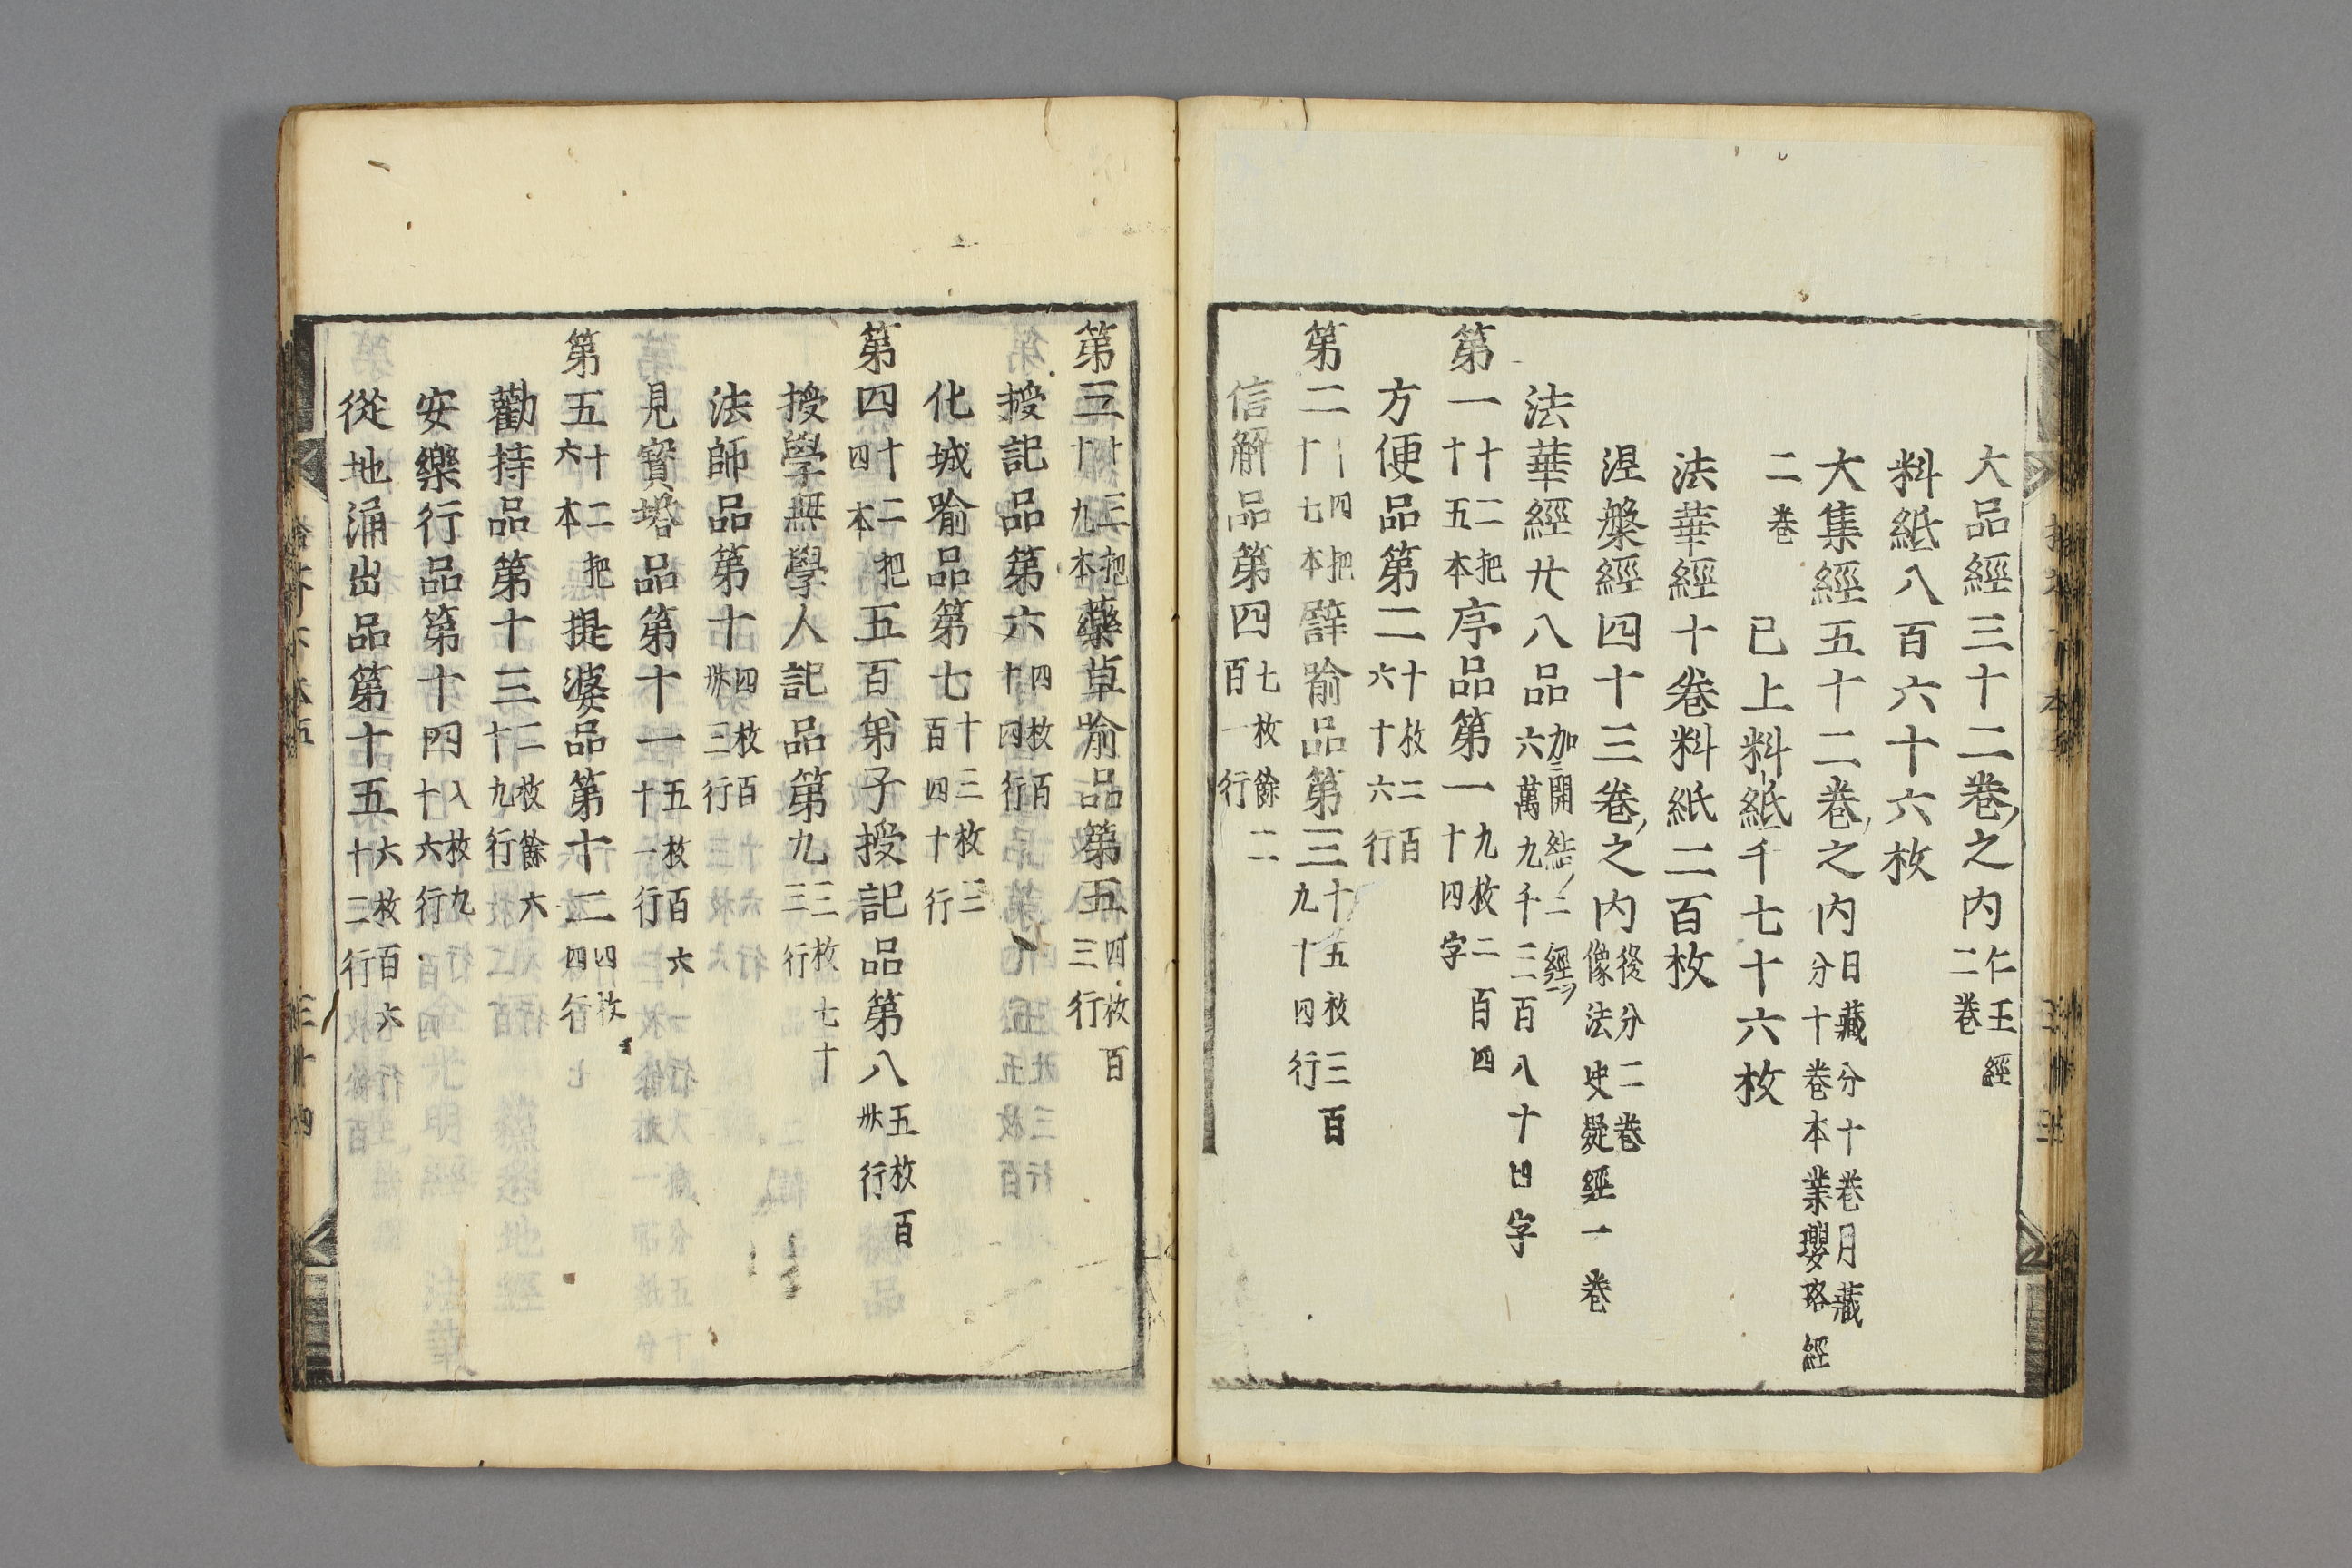 大品經三十二卷之内仁王經二卷
料紙八百六十六枚
大集經五十二卷之内日藏分十卷月藏分十卷本業瓔珞經
二卷 已上料紙千七十六枚
法華經十卷料紙二百枚
涅槃經四十三卷之内後分二卷像法史疑經一卷
法華經廿八品加開結二經六萬九千三百八十四字
第一十二把十五本序品第一九枚二百四十四字
方便品第二十枚二百六十六行
第二十四把十七本譬喻品第三十五枚三百九十四行
信解品第四七枚餘二百一行
第三十三把十九本藥草喻品第五四枚百三行
授記品第六四枚百十四行
化城喻品第七十三枚三百四十行
第四十二把四本五百弟子授記品第八五枚百卅行
授學無學人記品第九三枚七十三行
法師品第十四枚百卅三行
見寶塔品第十一五枚百六十一行
第五十二把六本提婆品第十二四枚百七四行
勸持品第十三二枚餘六十九行
安樂行品第十四八枚九十六行
從地涌出品第十五六枚百六十二行
三十四